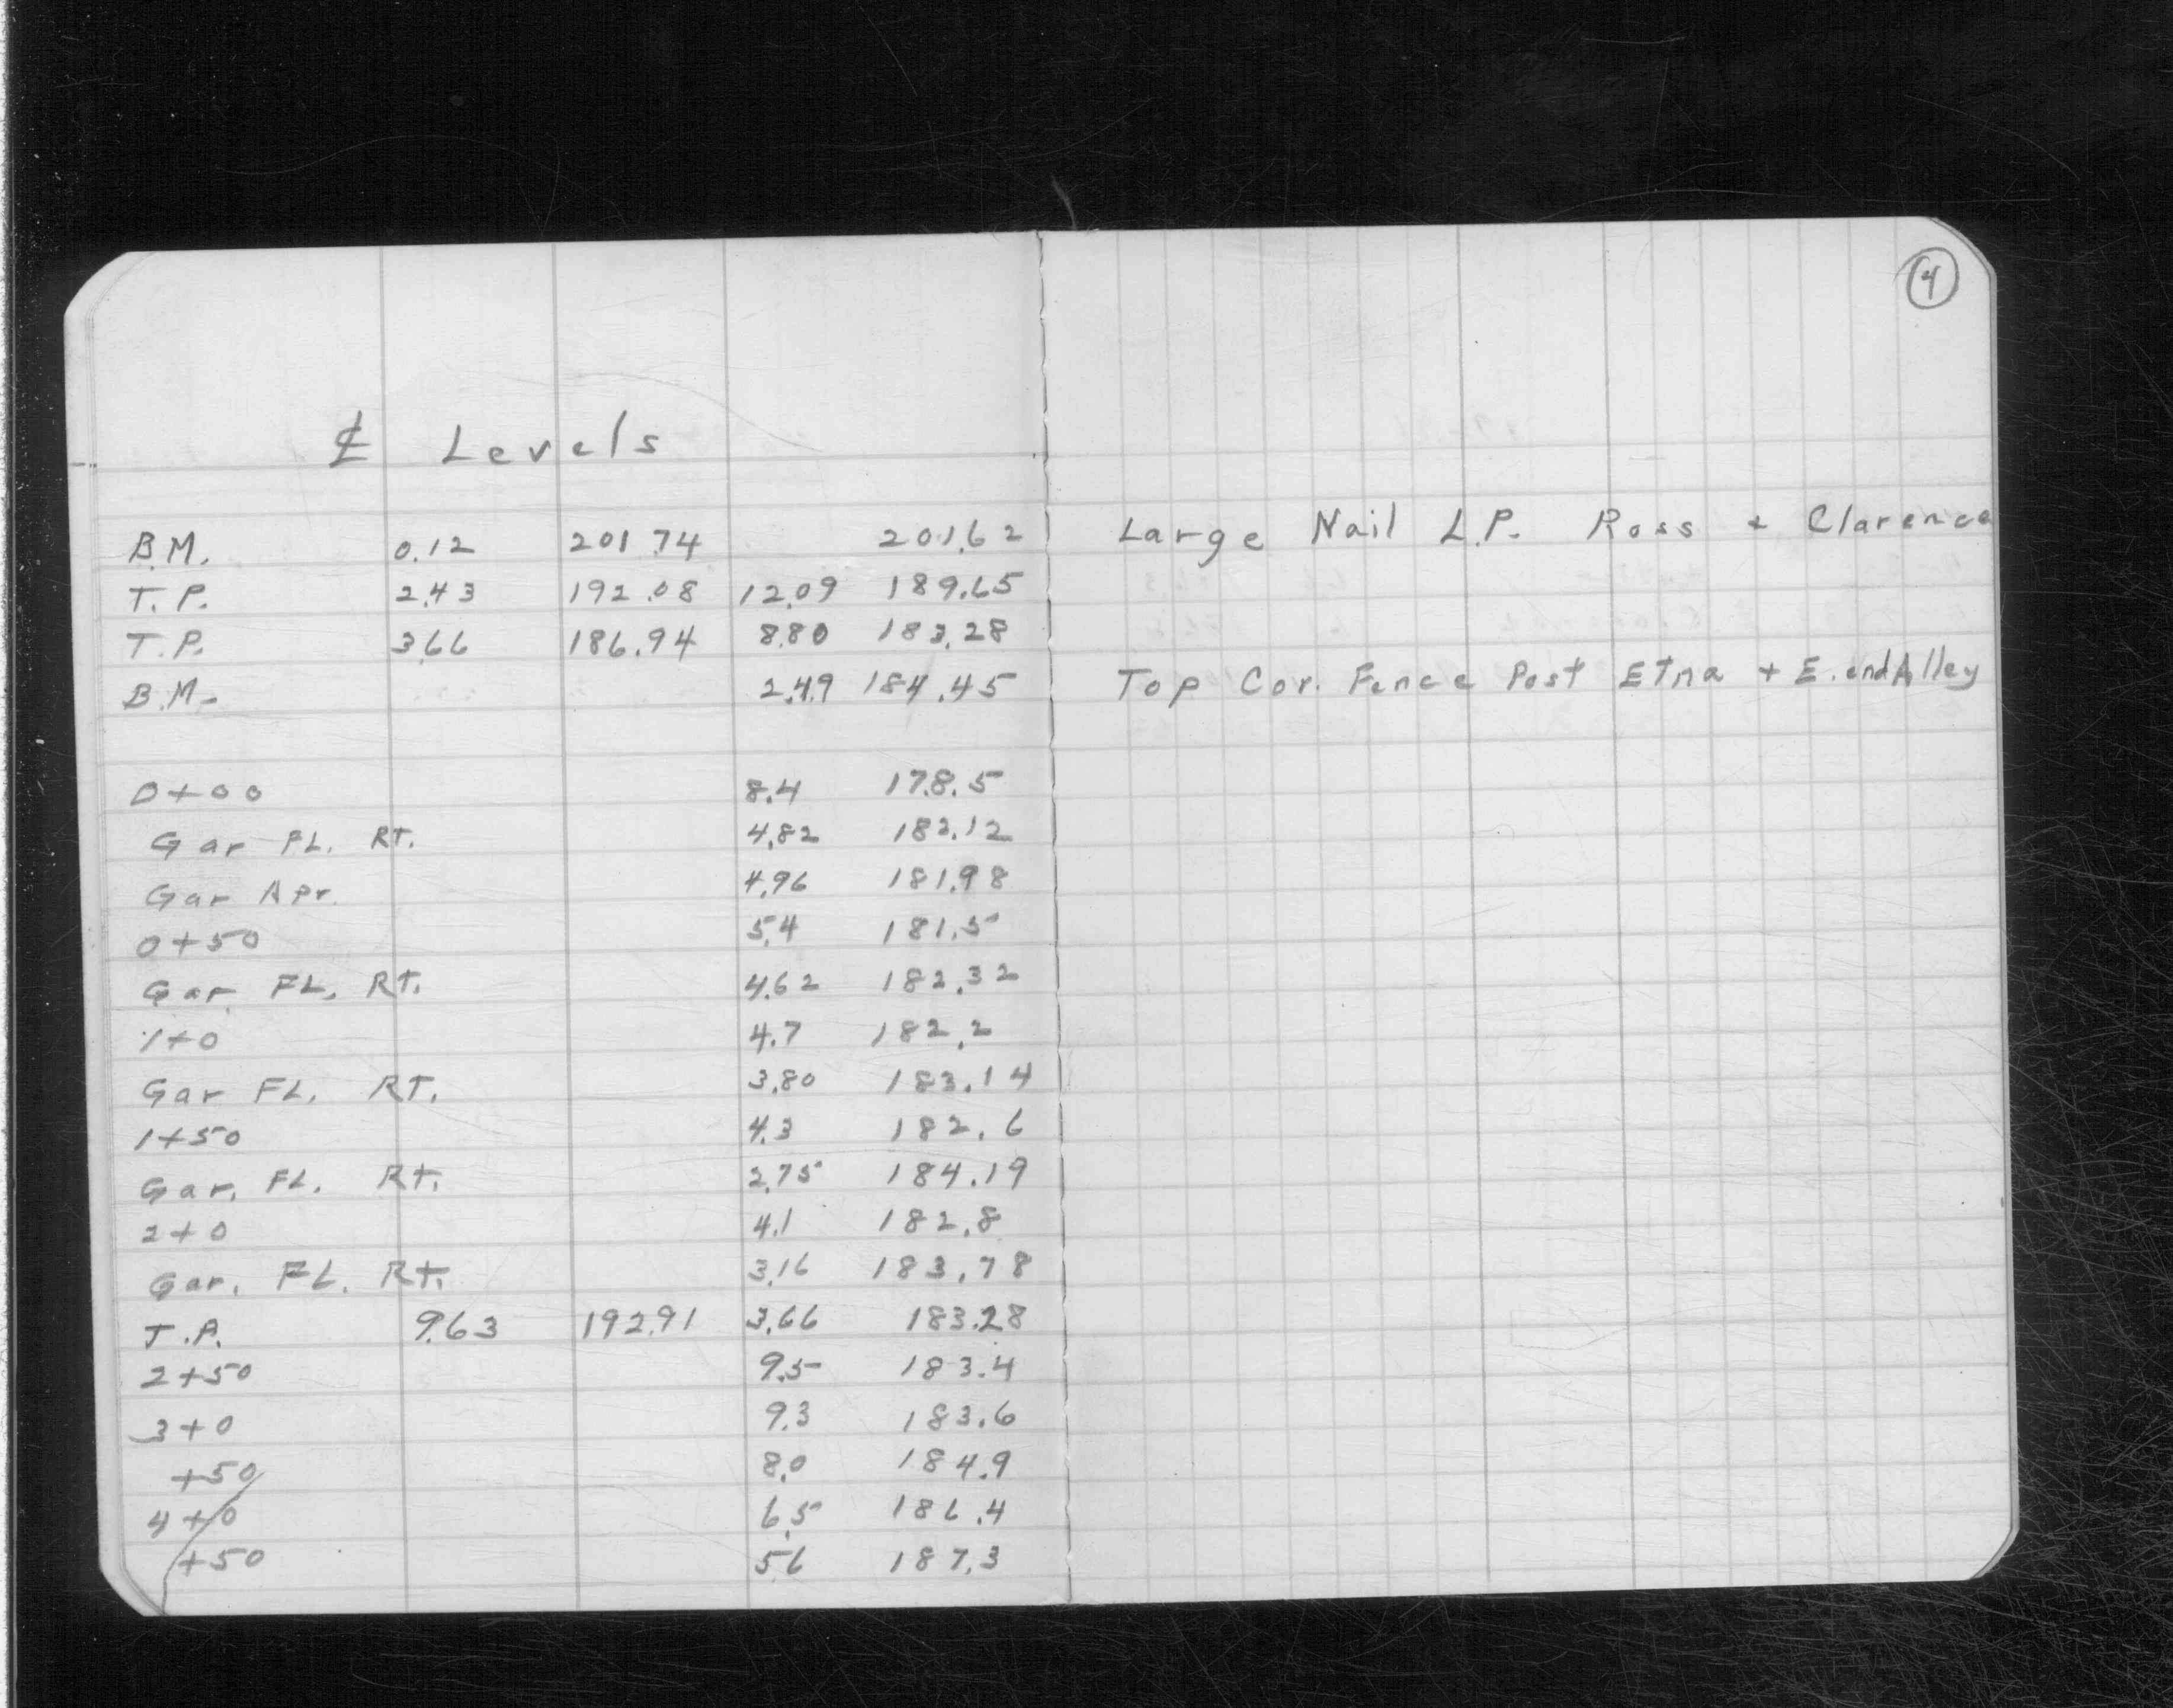 4
℄ Levels
B.M. 0.12 201.74 201.62 Large Nail L.P. Ross + Clarence
T.P. 2.43 192.08 12.09 189.65
T.P. 3.66 186.94 8.80 183.28
B.M. 2.49 184.45 Top Cor. Fence Post Etna + E. end Alley
0+00 8.4 178.5
Gar FL. RT. 4.82 182.12
Gar Apr. 4.96 181.98
0+50 5.4 181.5
Gar FL. RT. 4.62 182.32
1+0 4.7 182.2
Gar FL. RT. 3.80 183.14
1+50 4.3 182.6
Gar. FL. RT. 2.75 184.19
2+0 4.1 182.8
Gar. FL. RT. 3.16 183.78
T.P. 9.63 192.91 3.66 183.28
2+50 9.5 183.4
3+0 9.3 183.6
+50 8.0 184.9
4+0 6.5 186.4
+50 5.6 187.3